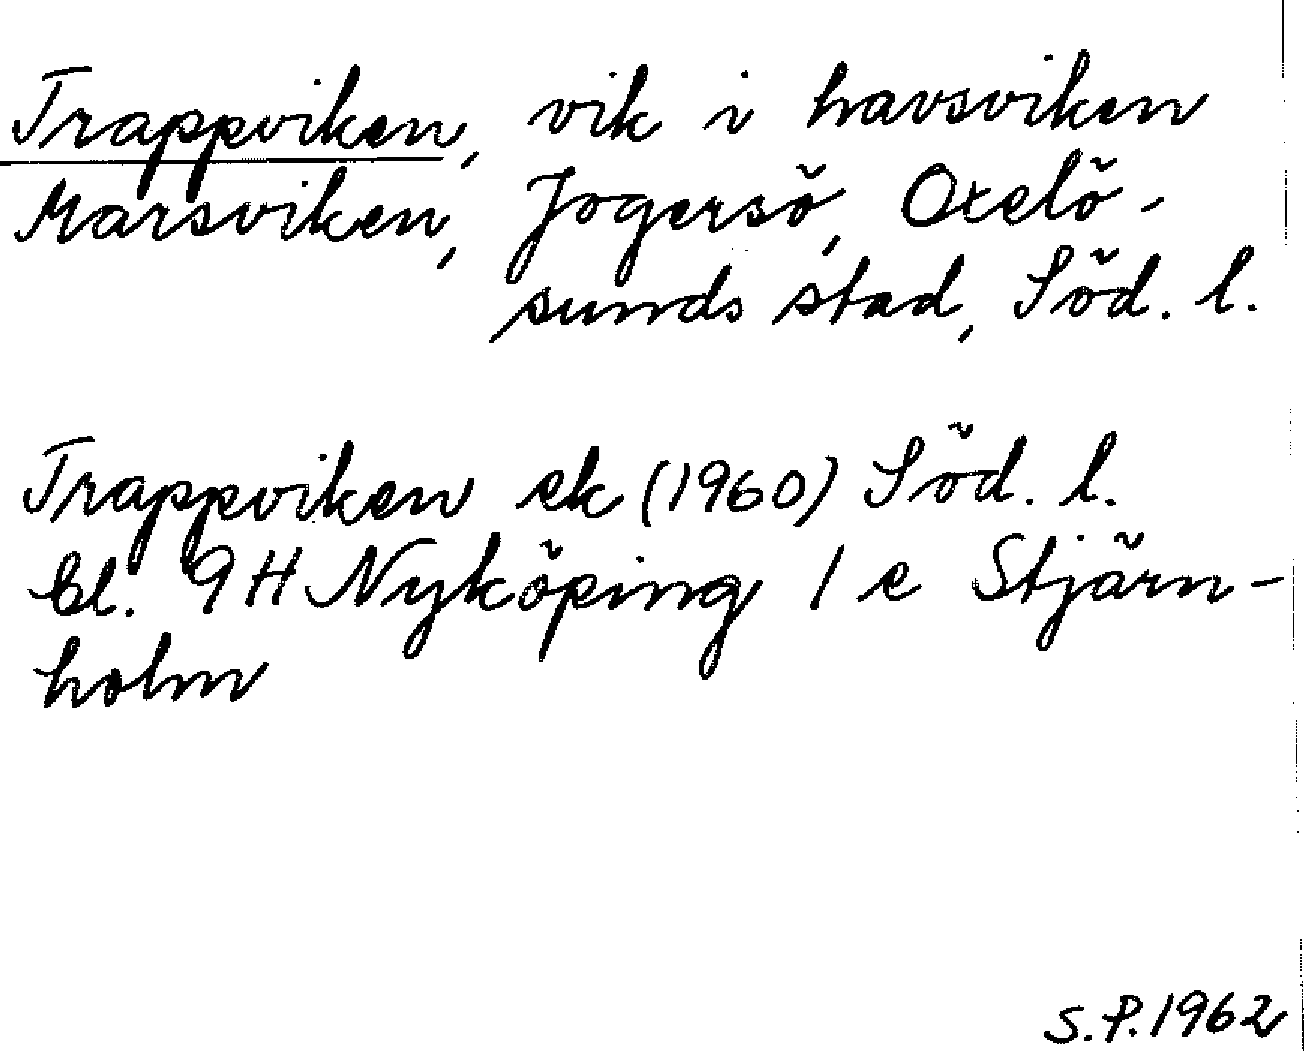 Trappviken, vik i havsviken
Marsviken, Jogersö, Oxelö-
sunds stad, Söd. l.
Trappviken ek (1960) Söd. l.
bl. 9H Nyköping 1 e Stjärn-
holm
S.P. 1962